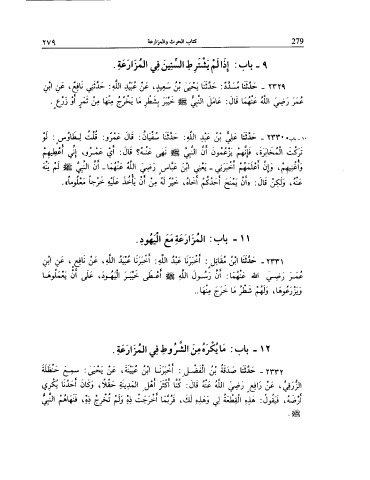 ٢٧٩ كتاب الحرث والمزارعة 279
٩ - باب: إِذَا لَمْ يَشْتَرِطِ السِّنِينَ فِي المُزَارَعَةِ.
٢٣٢٩ - حَدَّثَنَا مُسَدَّدٌ: حَدَّثَنَا يَحْيَى بْنُ سَعِيدٍ، عَنْ عُبَيْدِ اللَّهِ: حَدَّثَنِي نَافِعٌ، عَنِ ابْنِ
عُمَرَ رَضِيَ اللَّهُ عَنْهُمَا قَالَ: عَامَلَ النَّبِيُّ ﷺ خَيْبَرَ بِشَطْرِ مَا يَخْرُجُ مِنْهَا مِنْ ثَمَرٍ أَوْ زَرْعٍ.
٢٣٣٠ - حَدَّثَنَا عَلِيُّ بْنُ عَبْدِ اللَّهِ: حَدَّثَنَا سُفْيَانُ: قَالَ عَمْرٌو: قُلْتُ لِطَاوُسٍ: لَوْ
تَرَكْتَ المُخَابَرَةَ، فَإِنَّهُمْ يَزْعُمُونَ أَنَّ النَّبِيَّ ﷺ نَهَى عَنْهُ؟ قَالَ: أَيْ عَمْرُو، إِنِّي أُعْطِيهِمْ
وَأُغْنِيهِمْ، وَإِنَّ أَعْلَمَهُمْ أَخْبَرَنِي - يَعْنِي ابْنَ عَبَّاسٍ رَضِيَ اللَّهُ عَنْهُمَا - أَنَّ النَّبِيَّ ﷺ لَمْ يَنْهَ
عَنْهُ، وَلَكِنْ قَالَ: وَأَنْ يَمْنَحَ أَحَدُكُمْ أَخَاهُ، خَيْرٌ لَهُ مِنْ أَنْ يَأْخُذَ عَلَيْهِ خَرْجاً مَعْلُوماً».
١١ - باب: المُزَارَعَةِ مَعَ اليَهُودِ.
٢٣٣١ - حَدَّثَنَا ابْنُ مُقَاتِلٍ: أَخْبَرَنَا عَبْدُ اللَّهِ: أَخْبَرَنَا عُبَيْدُ اللَّهِ، عَنْ نَافِعٍ، عَنِ ابْنِ
عُمَرَ رَضِيَ اللَّهُ عَنْهُمَا: أَنَّ رَسُولَ اللَّهِ ﷺ أَعْطَى خَيْبَرَ الْيَهُودَ، عَلَى أَنْ يَعْمَلُوهَا
وَيَزْرَعُوهَا، وَلَهُمْ شَطْرُ مَا خَرَجَ مِنْهَا..
١٢ - باب: مَا يُكْرَهُ مِنَ الشُّرُوطِ فِي المُزَارَعَةِ.
٢٣٣٢ - حَدَّثَنَا صَدَقَةُ بْنُ الْفَضْلِ: أَخْبَرَنَا ابْنُ عُيَيْنَةَ، عَنْ يَحْيَى: سَمِعَ حَنْظَلَةَ
الزُّرَقِيَّ، عَنْ رَافِعٍ رَضِيَ اللَّهُ عَنْهُ قَالَ: كُنَّا أَكْثَرَ أَهْلِ المَدِينَةِ حَقْلًا، وَكَانَ أَحَدُنَا يُكْرِي
أَرْضَهُ، فَيَقُولُ: هَذِهِ الْقِطْعَةُ لِي وَهَذِهِ لَكَ، فَرُبَّمَا أَخْرَجَتْ ذِهِ وَلَمْ تُخْرِجْ ذِهِ، فَنَهَاهُمُ النَّبِيُّ
ﷺ.